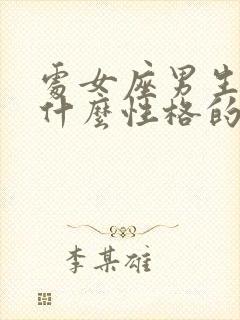 處女座男生
什麼性格的
李某雄